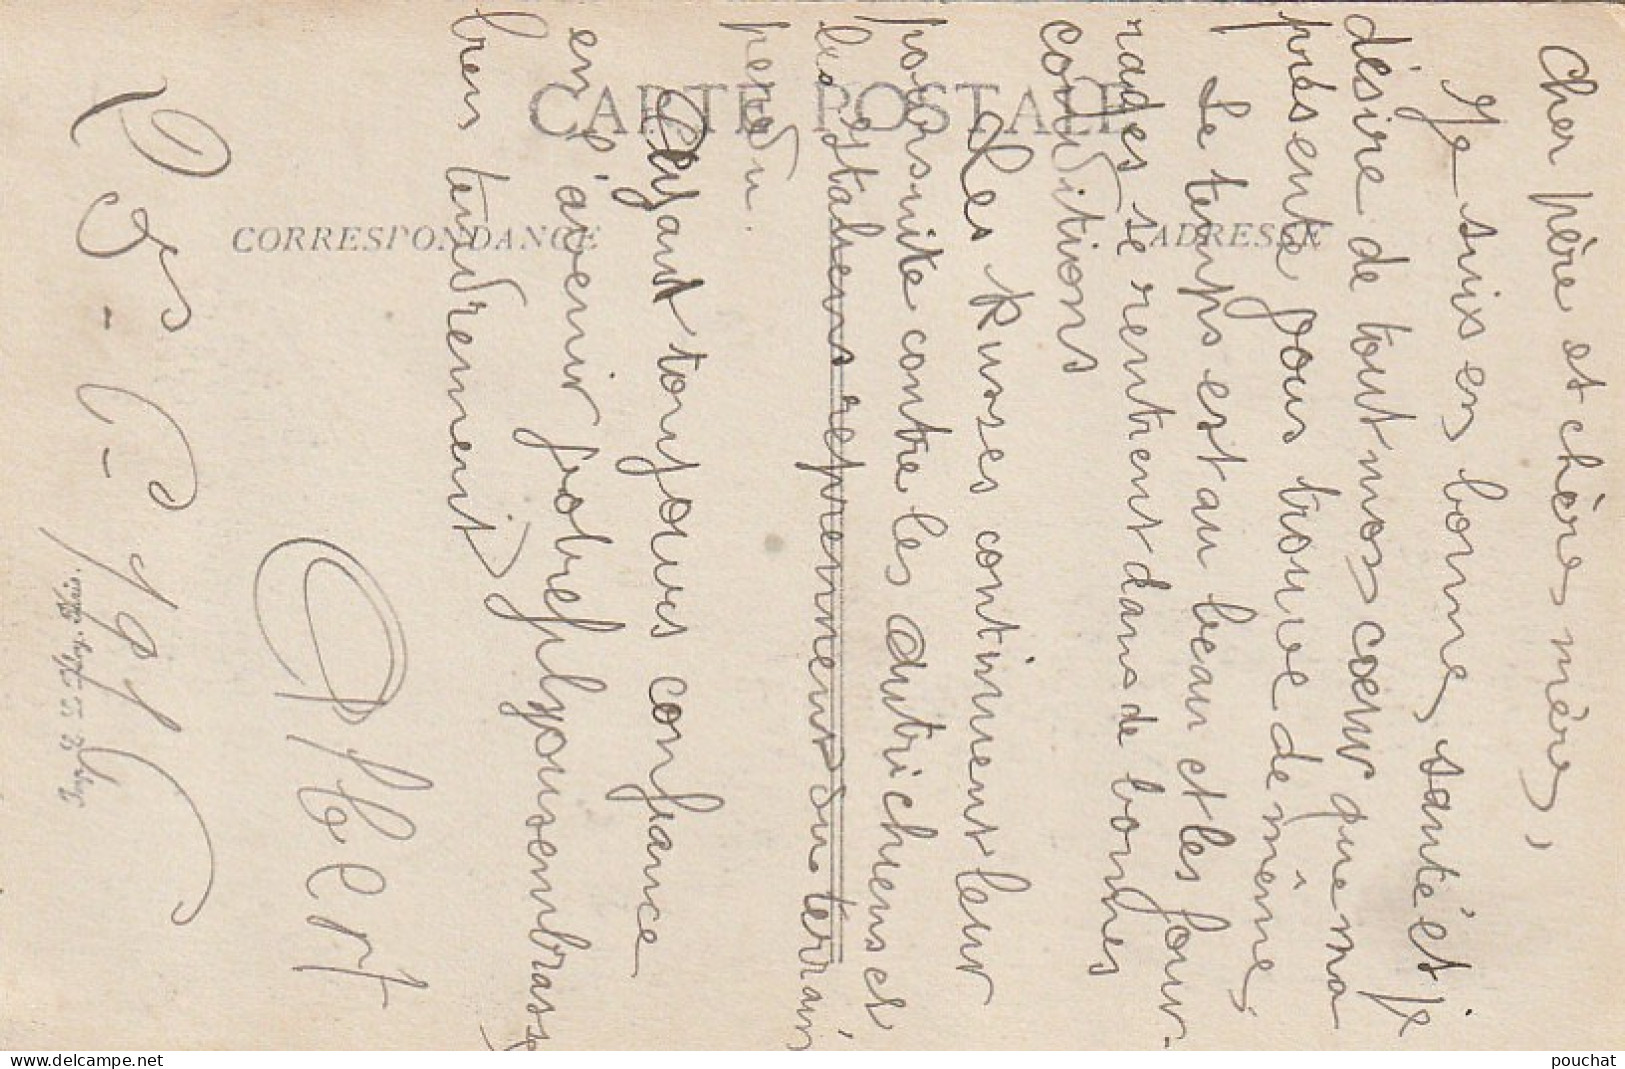 CARTE POSTALE
CORRESPONDANCE
ADRESSE
Cher père et chère mère,
Je suis en bonne santé et je
désire de tout mos cœur que ma
présente vous trouve de même,
Le temps est au beau et les four-
rages se rentrent dans de bonnes
conditions
Les Russes continuent leur
poursuite contre les autrichiens et
les Italiens reprennent du terrain
perdu.
Ayant toujours confiance
en l'avenir votre fils qui vous embrasse
bien tendrement
Albert
delcampe.net
pouchat